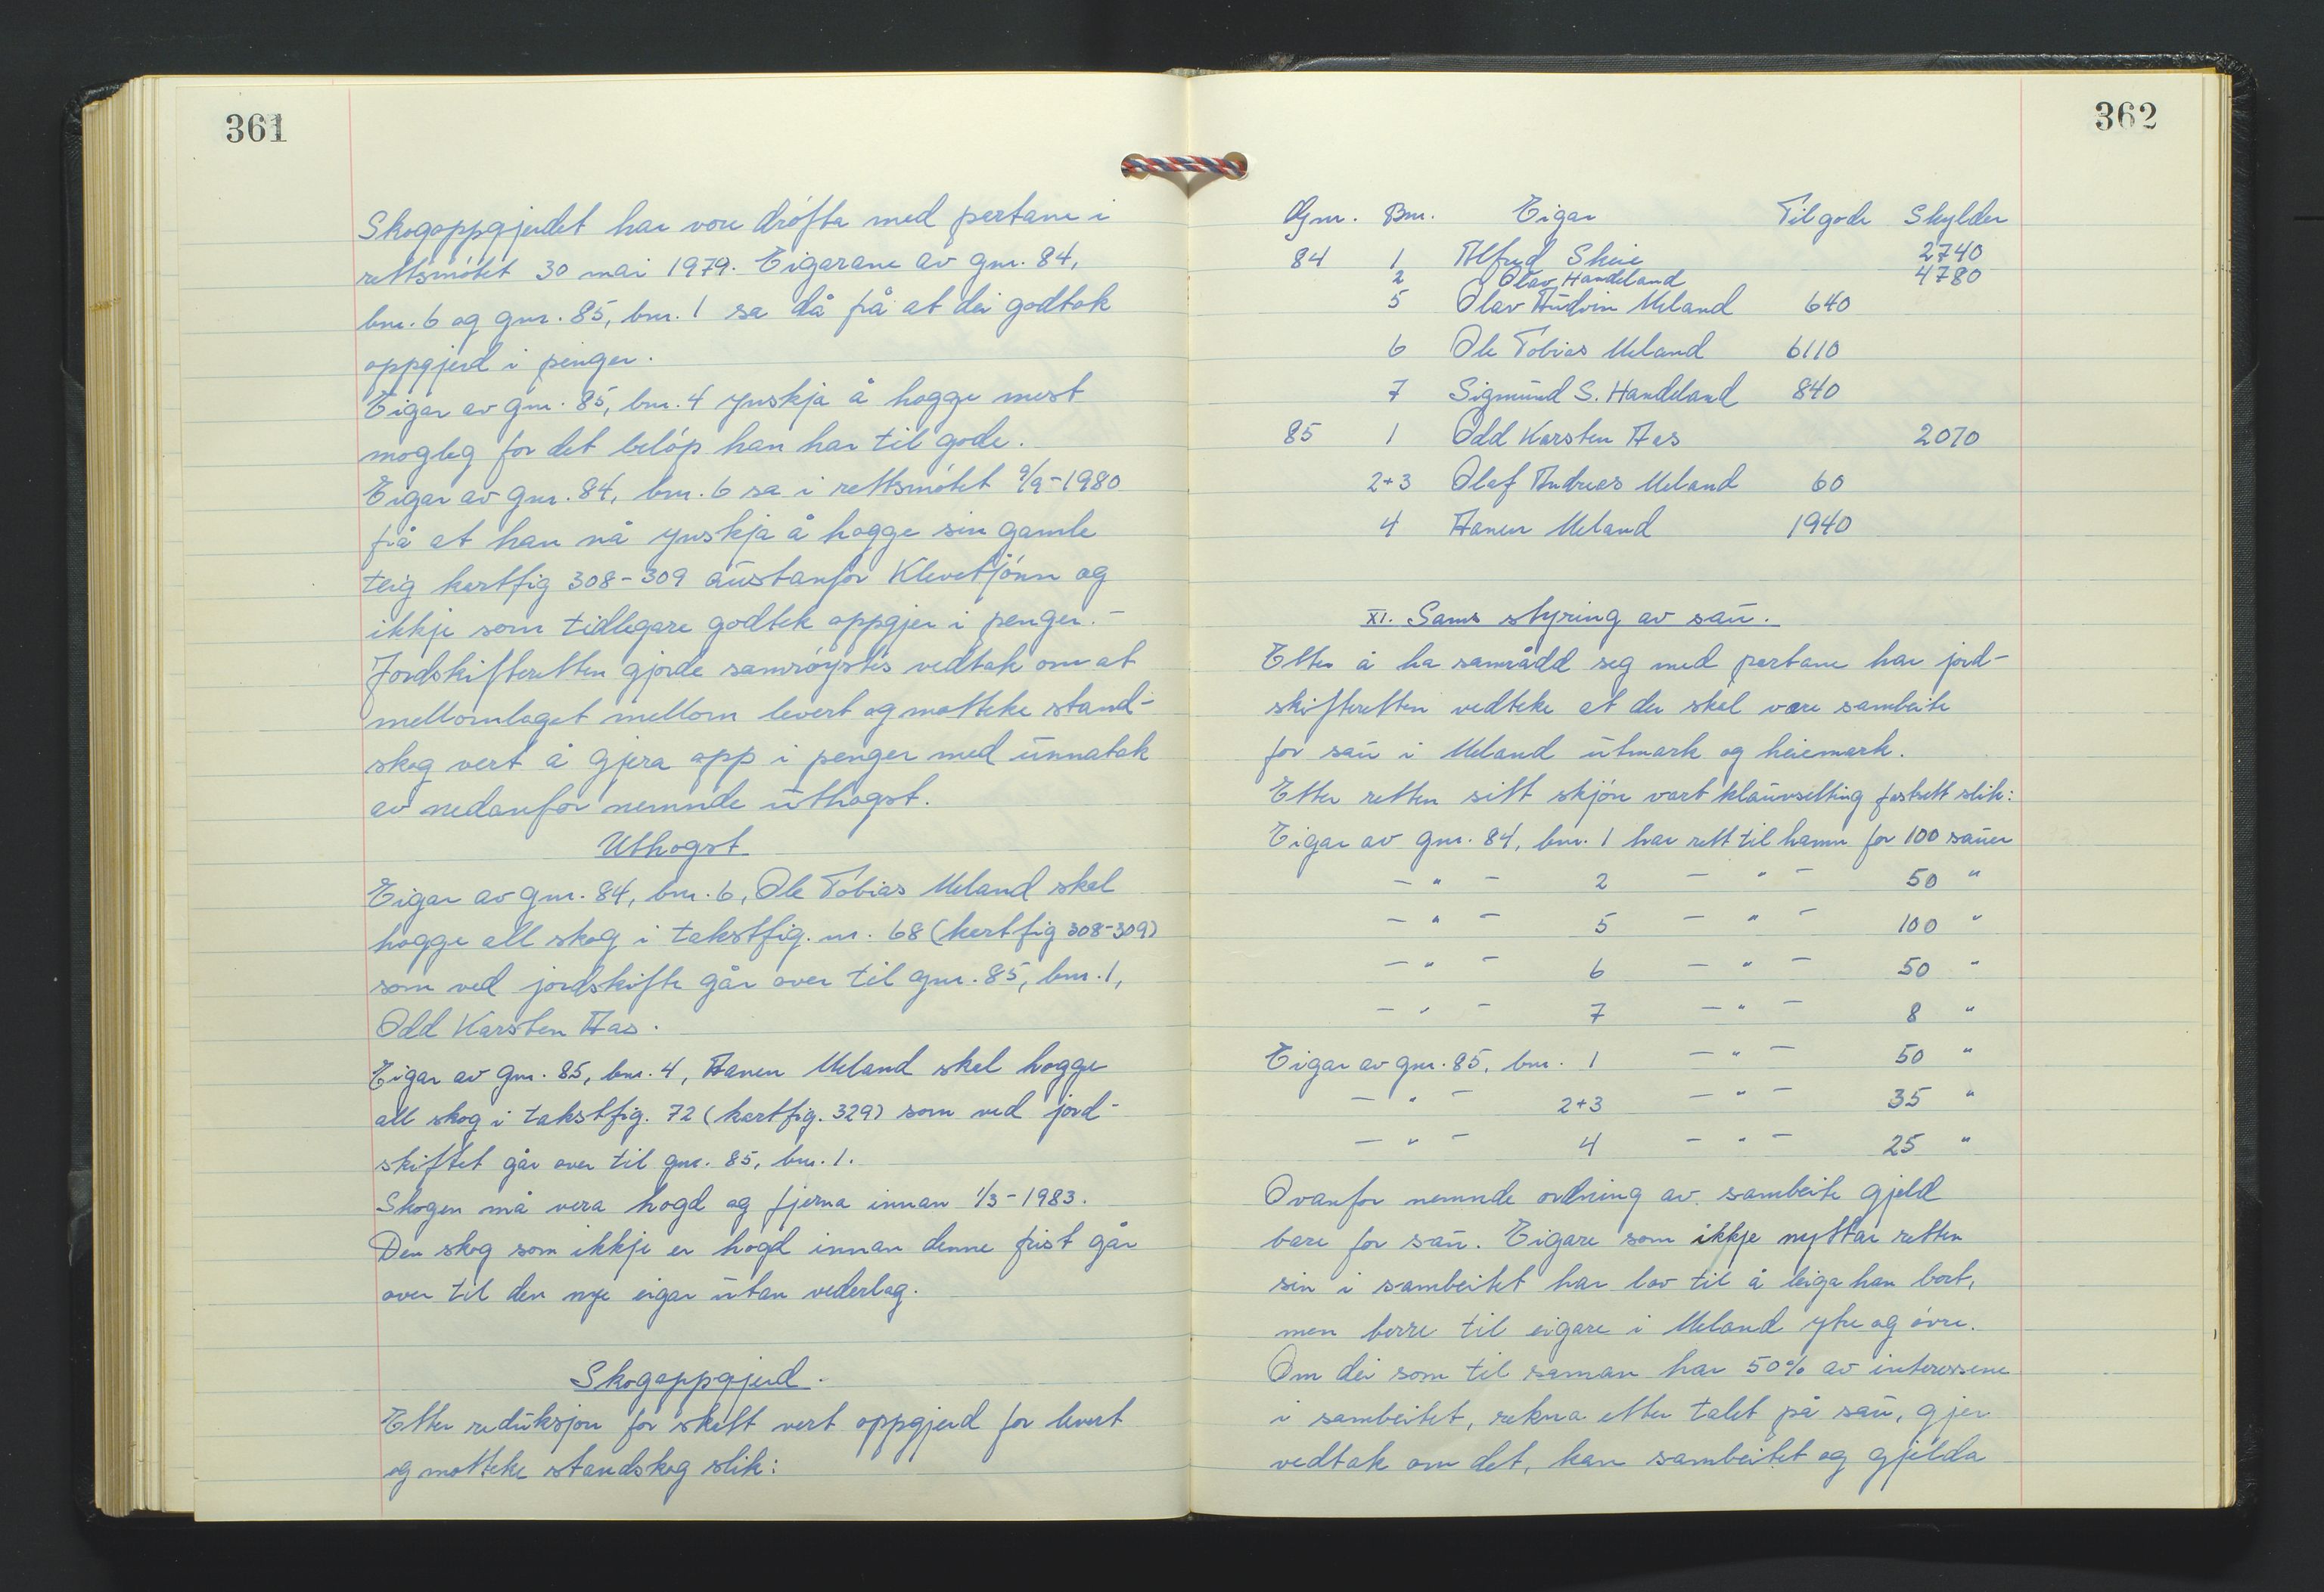 361
Skogoppgjerdet har vore drófta med partane i
rettsmótet 30 mai 1979. Eigarane av gnr. 84,
bnr. 6 og gnr. 85, bnr. 1 sa då frå at dei godtok
oppgjerd i penger.
Eigar av gnr. 85, bnr. 4 ynskja å hogge mest
mogleg for det beløp han har til gode.
Eigar av gnr. 84, bnr. 6 sa i rettsmótet 9/9-1980
frå at han nå ynskja å hogge sin gamle
teig kartfig 308-309 austanfor Klevetjónn og
ikkje som tidlegare godtek oppgjer i penger.-
Jordskifteretten gjorde samrøystes vedtak om at
mellomlaget mellom levert og motteke stand-
skog vert å gjera opp i penger med unnatak
av nedanfor nemnde uthogst.
Uthogst
Eigar av gnr. 84, bnr. 6, Ole Tobias Meland skal
hogge all skog i takstfig. nr. 68 (kartfig 308-309)
som ved jordskifte går over til gnr. 85, bnr. 1,
Odd Karsten Aas.
Eigar av gnr. 85, bnr. 4, Aanen Meland skal hogge
all skog i takstfig. 72 (kartfig. 329) som ved jord-
skiftet går over til gnr. 85, bnr. 1.
Skogen må vera hogd og fjerna innan 1/3-1983.
Den skog som ikkje er hogd innan denne frist går
over til den nye eigar utan vederlag.
Skogoppgjerd.
Etter reduksjon for skatt vert oppgjerd for levert
og motteke standskog slik:
362
Gnr. Bnr. Eigar Tilgode Skylder
84 1 Alfred Skeie 2740
2 Olav Handeland 4780
5 Olav Audvin Meland 640
6 Ole Tobias Meland 6110
7 Sigmund S. Handeland 840
85 1 Odd Karsten Aas 2070
2+3 Olaf Andreas Meland 60
4 Aanen Meland 1940
XI. Sams styring av sau.
Etter å ha samrådd seg med partane har jord-
skifteretten vedteke at der skal være sambeite
for sau i Meland utmark og heiemark.
Etter retten sitt skjón vart klauvsetting fastsett slik:
Eigar av gnr. 84, bnr. 1 har rett til hamn for 100 sauer
- " - 2 - " - 50 "
- " - 5 - " - 100 "
- " - 6 - " - 50 "
- " - 7 - " - 8 "
Eigar av gnr. 85, bnr. 1 - " - 50 "
- " - 2+3 - " - 35 "
- " - 4 - " - 25 "
Ovanfor nemnde ordning av sambeite gjeld
bare for sau. Eigare som ikkje nyttar retten
sin i sambeitet har lov til å leiga han bort,
men berre til eigare i Meland ytre og óvre.
Om dei som til saman har 50% av interessene
i sambeitet, rekna etter talet på sau, gjer
vedtak om det, kan sambeitet og gjelda